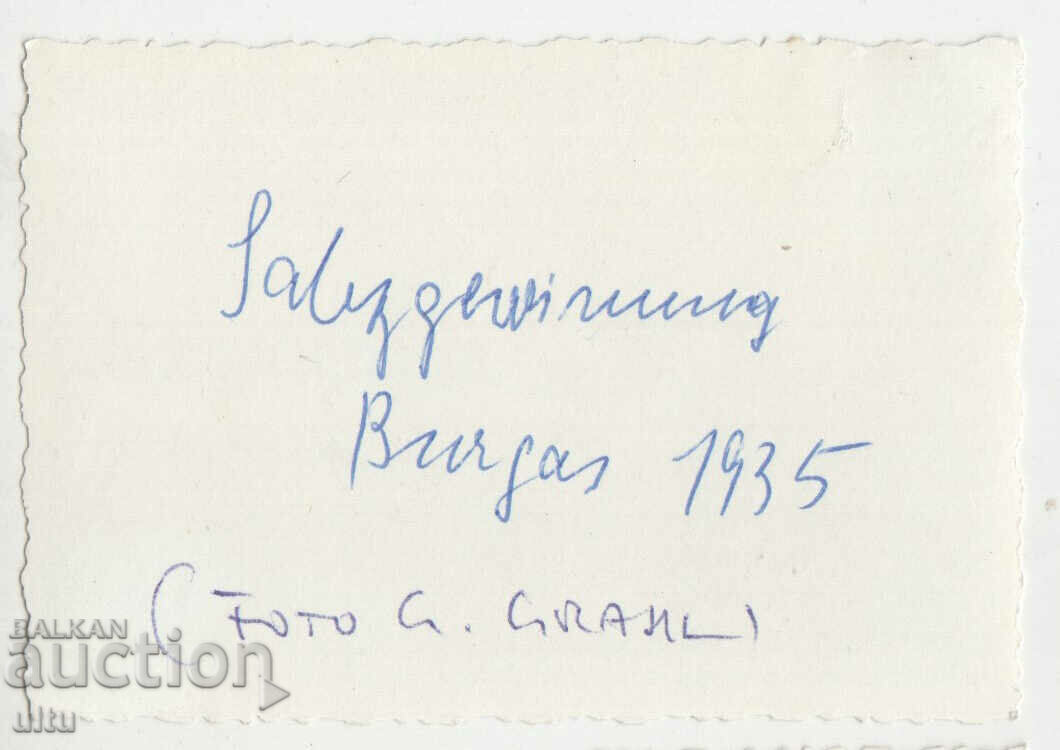 Salzgewinnung
Burgas 1935
(FOTO G. GRASHL)
BALKAN
auction
ultu